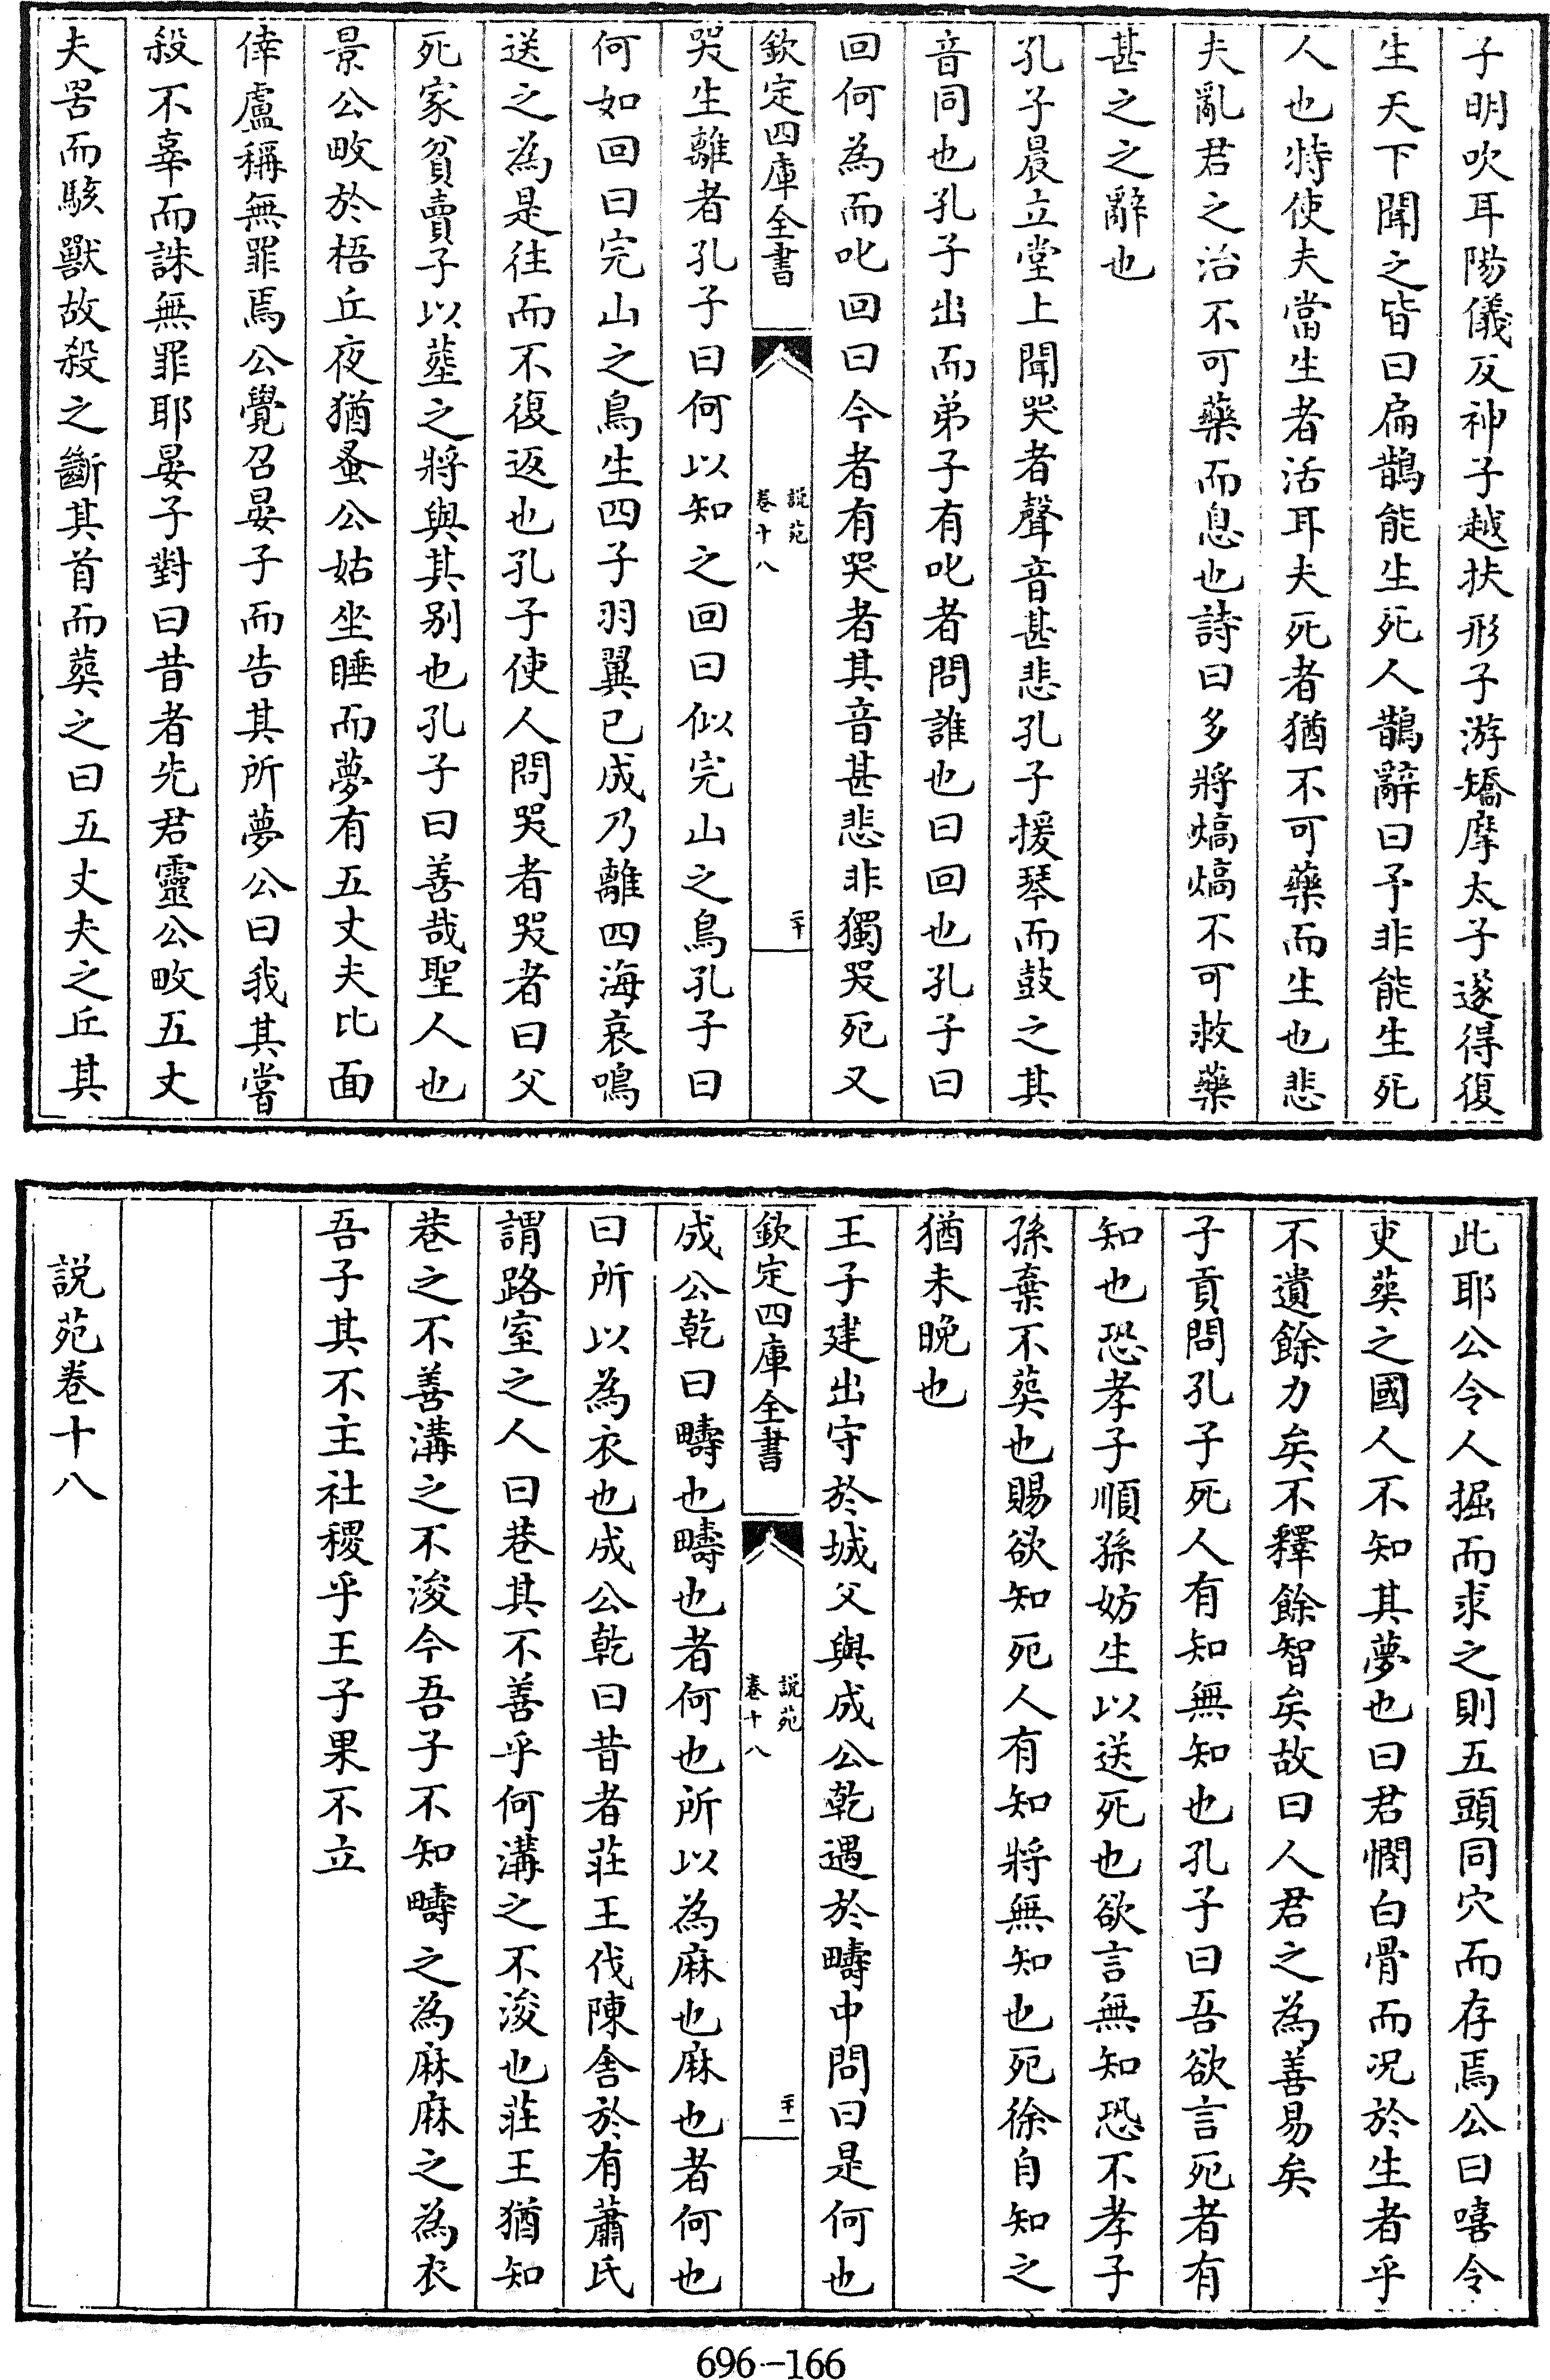 子明吹耳陽儀反神子越扶形子游矯摩太子遂得復
生天下聞之皆曰扁鵲能生死人鵲辭曰予非能生死
人也特使夫當生者活耳夫死者猶不可藥而生也悲
夫亂君之治不可藥而息也詩曰多將熇熇不可救藥
甚之之辭也
孔子晨立堂上聞哭者聲音甚悲孔子援琴而鼓之其
音同也孔子出而弟子有叱者問誰也曰回也孔子曰
回何為而叱回曰今者有哭者其音甚悲非獨哭死又
欽定四庫全書
說苑
卷十八
二十
哭生離者孔子曰何以知之回曰似完山之鳥孔子曰
何如回曰完山之鳥生四子羽翼已成乃離四海哀鳴
送之為是往而不復返也孔子使人問哭者哭者曰父
死家貧賣子以葬之將與其別也孔子曰善哉聖人也
景公畋於梧丘夜猶蚤公姑坐睡而夢有五丈夫比面
倖盧稱無罪焉公覺召晏子而告其所夢公曰我其嘗
殺不辜而誅無罪耶晏子對曰昔者先君靈公畋五丈
夫罟而駭獸故殺之斷其首而葬之曰五丈夫之丘其
此耶公令人掘而求之則五頭同穴而存焉公曰嘻令
吏葬之國人不知其夢也曰君憫白骨而况於生者乎
不遺餘力矣不釋餘智矣故曰人君之為善易矣
子貢問孔子死人有知無知也孔子曰吾欲言死者有
知也恐孝子順孫妨生以送死也欲言無知恐不孝子
孫棄不葬也賜欲知死人有知將無知也死徐自知之
猶未晚也
王子建出守於城父與成公乾遇於疇中問曰是何也
欽定四庫全書
說苑
卷十八
二十一
成公乾曰疇也疇也者何也所以為麻也麻也者何也
曰所以為衣也成公乾曰昔者莊王伐陳舍於有蕭氏
謂路室之人曰巷其不善乎何溝之不浚也莊王猶知
巷之不善溝之不浚今吾子不知疇之為麻麻之為衣
吾子其不主社稷乎王子果不立
說苑卷十八
696-166